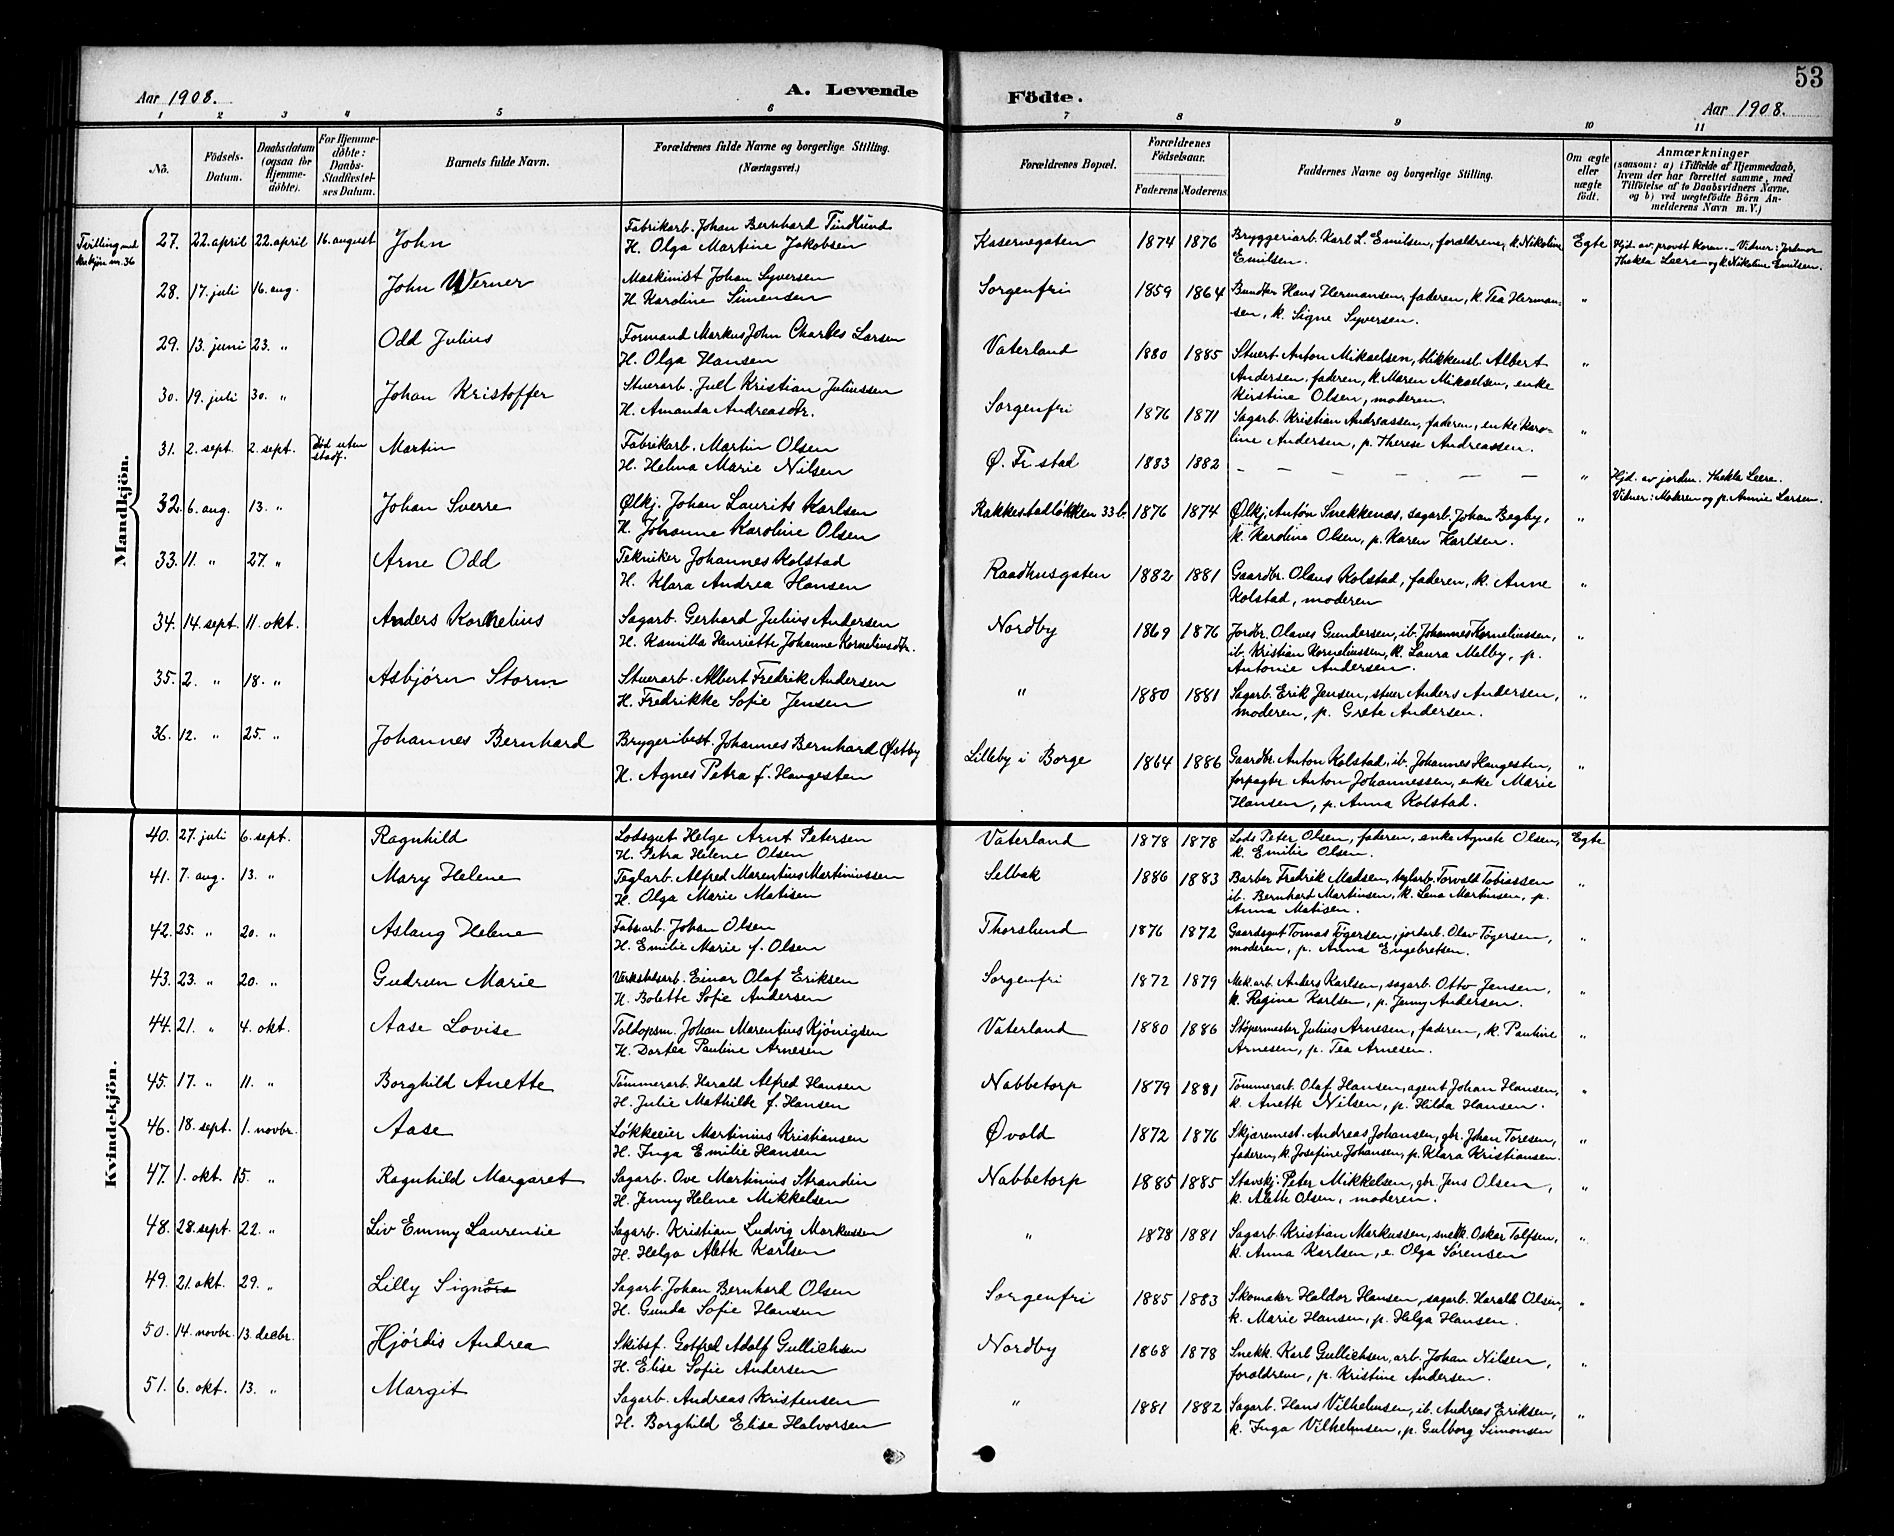 53
Aar 1908.
A. Levende
Födte.
Aar 1908.
1 2 3 4 5 6 7 8 9 10 11
No.
Födsels-Datum.
Daabsdatum (ogsaa for Hjemmedöbte).
For Hjemmedöbte: Daabs-Stadfæstelses Datum.
Barnets fulde Navn.
Forældrenes fulde Navne og borgerlige Stilling. (Næringsvei.)
Forældrenes Bopæl.
Forældrenes Födselsaar.
Faderens Moderens
Faddernes Navne og borgerlige Stilling.
Om ægte eller uægte født.
Anmærkninger
(saasom: a) i Tilfælde af Hjemmedaab,
hvem der har forrettet samme, med
Tilföielse af to Daabsvidners Navne,
og b) ved uægtefödte Börn Anmelderens Navn m. V.)
Mandkjön.
Tvilling med
kvkjön nr. 36
27. 22. april 22. april 16. august John Fabrikarb. Johan Bernhard Tindlund Kasernegaten 1874 1876 Bryggeriarb. Karl L. Emilsen, forældrene, k. Nikoline Egte Hjd. av provst Koren. – Vidner: Jordmor
H. Olga Martine Jakobsen Emilsen. Thekla Leere og k. Nikoline Emilsen.
28. 17. juli 16. aug. John Werner Maskinist Johan Syversen Sorgenfri 1859 1864 Bundtm. Hans Hermansen, faderen, k. Tea Herman- "
H. Karoline Simensen sen, k. Signe Syversen.
29. 13. juni 23. " Odd Julius Formand Markus John Charles Larsen Vaterland 1880 1885 Stuert Anton Mikaelsen, blikkensl. Albert "
H. Olga Hansen Andersen, faderen, k. Maren Mikaelsen, enke
Kirstine Olsen, moderen.
30. 19. juli 30. " Johan Kristoffer Stuerarb. Juel Kristian Juliussen Sorgenfri 1876 1871 Sagarb. Kristian Andreassen, faderen, enke Karo- "
H. Amanda Andreasdtr. line Andersen, p. Therese Andreassen.
31. 2. sept. 2. sept. død uten stadf. Martin Fabrikarb. Martin Olsen Ø. Fr.stad 1883 1882 – – – – – – " Hjd. av jordm. Thekla Leere.
H. Helma Marie Nilsen Vidner: Moderen og p. Annie Larsen.
32. 6. aug. 13. " Johan Sverre Ølkj. Johan Laurits Karlsen Rakkestadløkken 33b. 1876 1874 Ølkj. Anton Snekkenæs, sagarb. Johan Begby, "
H. Johanne Karoline Olsen k. Karoline Olsen, p. Karen Karlsen.
33. 11. " 27. " Arne Odd Tekniker Johannes Kolstad Raadhusgaten 1882 1881 Gaardbr. Olaus Kolstad, faderen, k. Anne "
H. Klara Andrea Hansen Kolstad, moderen
34. 14. sept. 11. okt. Anders Kornelius Sagarb. Gerhard Julius Andersen Nordby 1869 1876 Jordbr. Olaves Gundersen, ib. Johannes Korneliussen, "
H. Kamilla Henriette Johanne Korneliusdtr. ib. Kristian Korneliussen, k. Laura Melby, p.
Antonie Andersen.
35. 2. " 18. " Asbjørn Storm Stuerarb. Albert Fredrik Andersen " 1880 1881 Sagarb. Erik Jensen, stuer Anders Andersen, "
H. Fredrikke Sofie Jensen moderen, p. Grete Andersen.
36. 12. " 25. " Johannes Bernhard Brygeribest. Johannes Bernhard Østby Lilleby i Borge 1864 1886 Gaardbr. Anton Kolstad, ib. Johannes Haugesten, "
H. Agnes Petra f. Haugesten forpagter Anton Johannessen, enke Marie
Hansen, p. Anna Kolstad.
Kvindekjön.
40. 27. juli 6. sept. Ragnhild Lodsgut Helge Arnt Petersen Vaterland 1878 1878 Lods Peter Olsen, faderen, enke Agnete Olsen, Egte
H. Petra Helene Olsen k. Emilie Olsen.
41. 7. aug. 13. " Mary Helene Teglarb. Alfred Marentius Martiniussen Selbak 1886 1883 Barber Fredrik Madsen, teglarb. Torvald Tobiassen "
H. Olga Marie Matisen ib. Bernhard Martinsen, k. Lena Martinsen, p.
Anna Matisen.
42. 25. " 20. " Aslaug Helene Fabrarb. Johan Olsen Thorslund 1876 1872 Gaardsgut Tomas Tøgersen, jordarb. Olav Tøgersen, "
H. Emilie Marie f. Olsen moderen, p. Anna Engebretsen.
43. 23. " 20. " Gudrun Marie Verkstedsarb. Einar Olaf Eriksen Sorgenfri 1872 1879 Mek.arb. Anders Karlsen, sagarb. Otto Jensen, "
H. Bolette Sofie Andersen k. Regine Karlsen, p. Jenny Andersen.
44. 21. " 4. okt. Aase Lovise Toldopsm. Johan Marentius Kjønigsen Vaterland 1880 1886 Støpermester Julius Arnesen, faderen, k. Pauline "
H. Dortea Pauline Arnesen Arnesen, p. Tea Arnesen.
45. 17. " 11. " Borghild Anette Tømmerarb. Harald Alfred Hansen Nabbetorp 1879 1881 Tømmerarb. Olaf Hansen, agent Johan Hansen, "
H. Julie Mathilde f. Hansen k. Anette Nilsen, p. Hilda Hansen.
46. 18. sept. 1. novbr. Aase Løkkeeier Martinius Kristiansen Øvald 1872 1876 Skjæremest. Andreas Johansen, gbr. Johan Toresen, "
H. Inga Emilie Hansen faderen, k. Josefine Johansen, p. Klara Kristiansen.
47. 1. okt. 15. " Ragnhild Margaret Sagarb. Ove Martinius Strandin Nabbetorp 1885 1885 Stavskj. Peter Mikkelsen, gbr. Jens Olsen, "
H. Jenny Helene Mikkelsen k. Alette Olsen, moderen.
48. 28. sept. 22. " Liv Emmy Laurensie Sagarb. Kristian Ludvig Markussen " 1878 1881 Sagarb. Kristian Markussen, snekk. Oskar Tolfsen, "
H. Helga Alette Karlsen k. Anna Karlsen, e. Olga Sørensen
49. 21. okt. 29. " Lilly Signora Sagarb. Johan Bernhard Olsen Sorgenfri 1885 1883 Skomaker Haldor Hansen, sagarb. Harald Olsen, "
H. Gunda Sofie Hansen k. Marie Hansen, p. Helga Hansen.
50. 14. novbr. 13. decbr. Hjørdis Andrea Skibsf. Gotfred Adolf Gullichsen Nordby 1868 1878 Snekk. Karl Gullichsen, arb. Johan Nilsen, "
H. Elise Sofie Andersen forældrene, p. Kristine Andersen.
51. 6. okt. 13. " Margit Sagarb. Andreas Kristensen " 1881 1882 Sagarb. Hans Vilhelmsen, ib. Andreas Eriksen, "
H. Borghild Elise Halvorsen k. Inga Vilhelmsen, p. Gulborg Simonsen